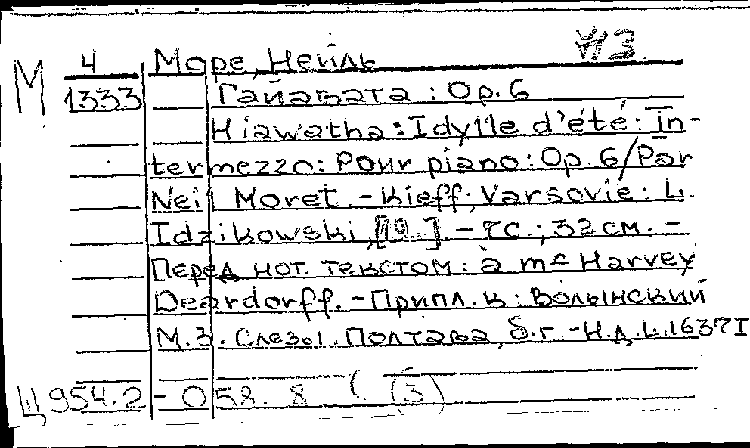 М 4 Море, Нейль УЗ
1333 Гайавата : Op. 6
Hiawatha : Idylle d'été : In-
termezzo : Pour piano : Op. 6 / Par
Neil Moret. - Kieff; Varsovie : L.
Idzikowski, [19 ]. - 7с. ; 32 см. -
Перед нот. текстом : à mc Harvey
Deardorff. - Припл. к : Волынский
М.З. Слезы. Полтава, б.г. - Н.д. L.1637I
Ц 954.2 - 058. 8 ( (3)